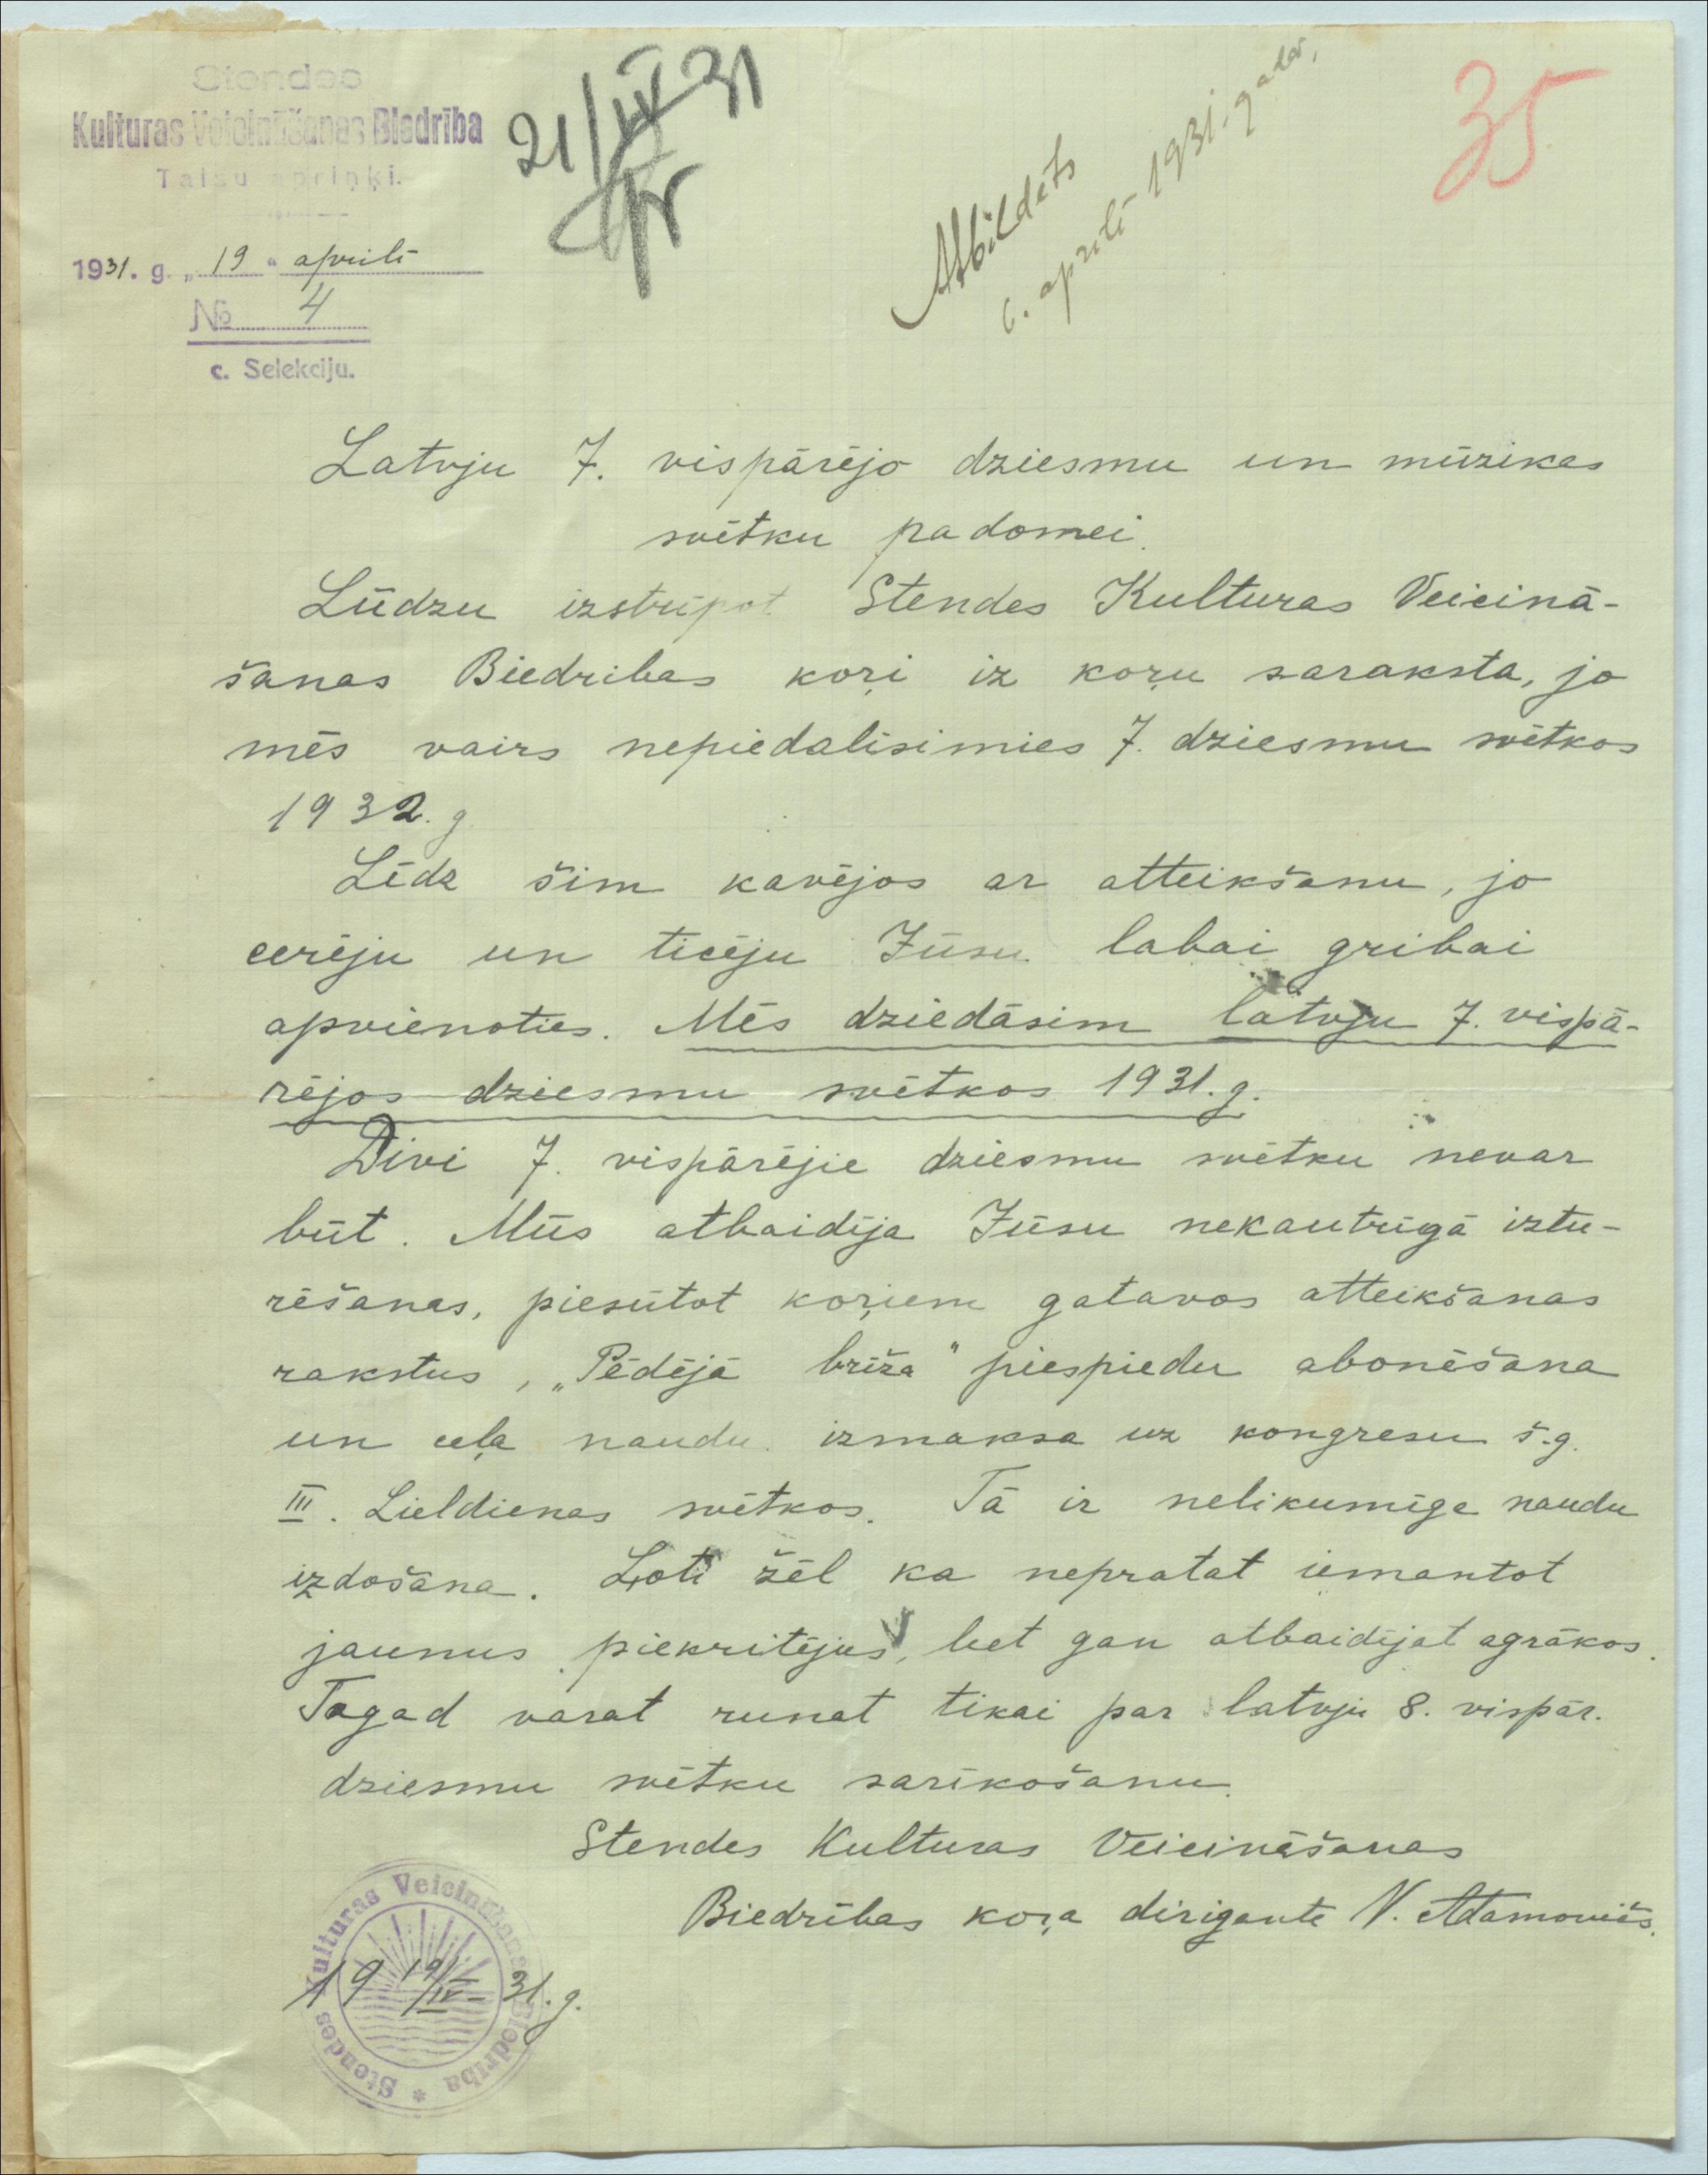 Stendes
Kulturas Veicināšanas Biedrība
Talsu apriņķī.
1931. g. „19" aprilī
№ 4
c. Selekciju.
21/IV 31
Atbildēts
aprīlī 1931. gadā,
35
Latvju 7. vispārējo dziesmu un mūzikas
svētku padomei.
Lūdzu izstrīpot Stendes Kulturas Veicinā-
šanas Biedribas koŗi iz koŗu saraksta, jo
mēs vairs nepiedalīsimies 7. dziesmu svētkos
1932. g.
Līdz šim kavējos ar atteikšanu, jo
cerēju un ticēju Jūsu labai gribai
apvienoties. Mēs dziedāsim latvju 7. vispā-
rējos dziesmu svētkos 1931. g.
Divi 7. vispārējie dziesmu svētku nevar
būt. Mūs atbaidīja Jūsu nekautrīgā iztu-
rēšanas, piesūtot koŗiem gatavos atteikšanas
rakstus, „Pēdējā brīža" piespiedu abonēšana
un ceļa naudu izmaksa uz kongresu š.g.
III. Lieldienas svētkos. Tā ir nelikumīga naudu
izdošana. Ļoti žēl ka nepratat iemantot
jaunus piekritējus, bet gan atbaidījat agrākos.
Tagad varat runat tikai par latvju 8. vispār.
dziesmu svētku sarīkošanu.
Stendes Kulturas Veicināšanas
Biedrības koŗa dirigents V. Adamovičs.
Stendes Kulturas Veicināšanas Biedrība *
19 19/IV 31. g.